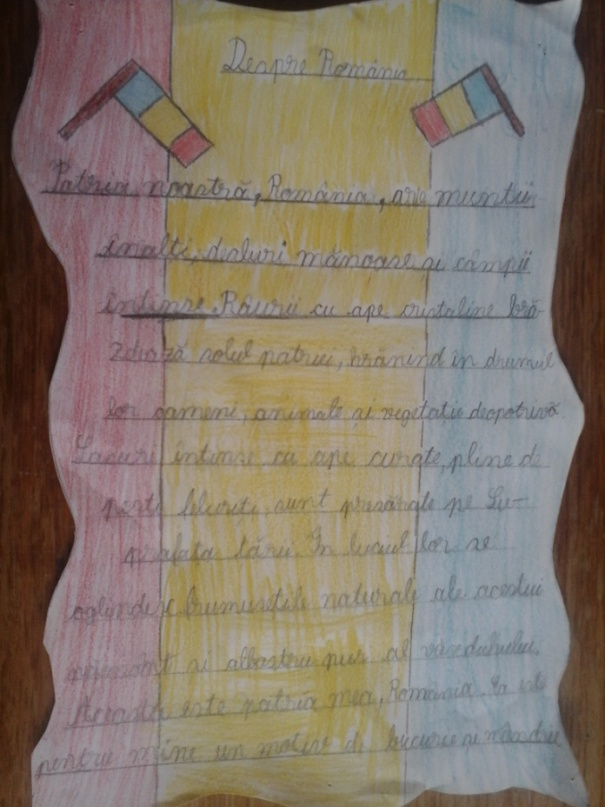 Despre România
Patria noastră, România, are muntii
înalti, dealuri mănoase și câmpii
întinse. Râurii cu ape cristaline bră-
zdează solul patriei, hrănind în drumul
lor oameni, animale și vegetație deopotrivă
Lacuri întinse, cu ape curate, pline de
pesti felurite, sunt presărate pe Su-
prafata tării. În luciul lor se
oglindesc frumusetile naturale ale acestui
si albastru pur al văzduhului.
Aceasta este patria mea, România. Ea este
pentru mine un motiv de bucurie si mândrie